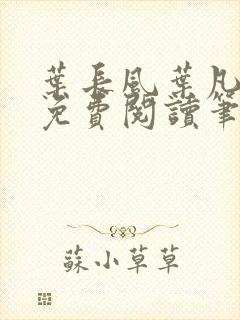 葉長風葉凡
免費閱讀筆
蘇小草草